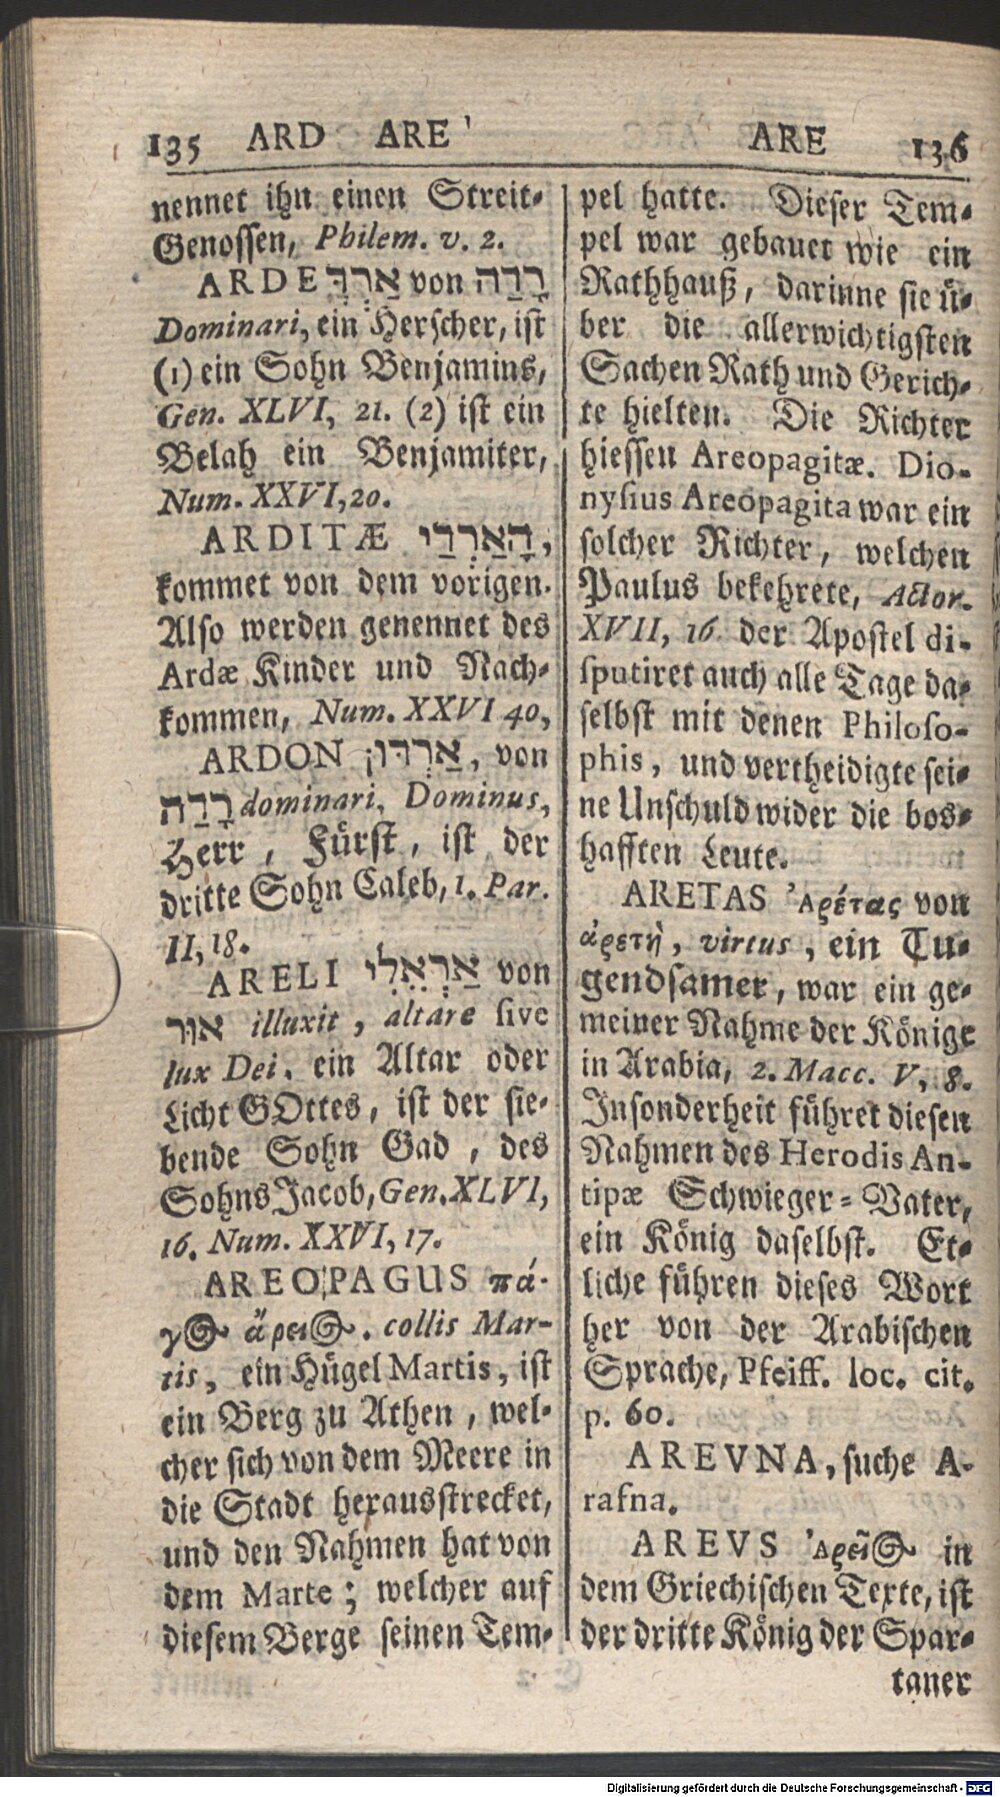 135 ARD ARE
nennet ihn einen Streit-
Genossen, Philem. v. 2.
ARDE אַרְדְּ von רָדַה
Dominari, ein Herscher, ist
(1) ein Sohn Benjamins,
Gen. XLVI, 21. (2) ist ein
Belah ein Benjamiter,
Num. XXVI, 20.
ARDITÆ הָאַרְדַי,
kommet von dem vorigen.
Also werden genennet des
Ardæ Kinder und Nach-
kommen, Num. XXVI 40,
ARDON אַרְדּוֹן, von
רָדַה dominari, Dominus,
Herr, Fürst, ist der
dritte Sohn Caleb, 1. Par.
II, 18.
ARELI אַרְאֵלִי von
אור illuxit, altare sive
lux Dei, ein Altar oder
Licht GOttes, ist der sie-
bende Sohn Gad, des
Sohns Jacob, Gen. XLVI,
16. Num. XXVI, 17.
AREOPAGUS πά-
γος ἄρειος. collis Mar-
tis, ein Hügel Martis, ist
ein Berg zu Athen, wel-
cher sich von dem Meere in
die Stadt herausstrecket,
und den Nahmen hat von
dem Marte; welcher auf
diesem Berge seinen Tem-
ARE 136
pel hatte. Dieser Tem-
pel war gebauet wie ein
Rathhauß, darinne sie ü-
ber die allerwichtigsten
Sachen Rath und Gerich-
te hielten. Die Richter
hiessen Areopagitæ. Dio-
nysius Areopagita war ein
solcher Richter, welchen
Paulus bekehrete, Actor.
XVII, 16 der Apostel di-
sputiret auch alle Tage da-
selbst mit denen Philoso-
phis, und vertheidigte sei-
ne Unschuld wider die bos-
hafften Leute.
ARETAS Ἀρέτας von
ἀρετὴ, virtus, ein Tu-
gendsamer, war ein ge-
meiner Nahme der Könige
in Arabia, 2. Macc. V, 8.
Insonderheit führet diesen
Nahmen des Herodis An-
tipæ Schwieger-Vater,
ein König daselbst. Et-
liche führen dieses Wort
her von der Arabischen
Sprache, Pfeiff. loc. cit.
p. 60.
AREVNA, suche A-
rafna.
AREVS Ἀρεῖος in
dem Griechischen Texte, ist
der dritte König der Spar-
taner
Digitalisierung gefördert durch die Deutsche Forschungsgemeinschaft - DFG